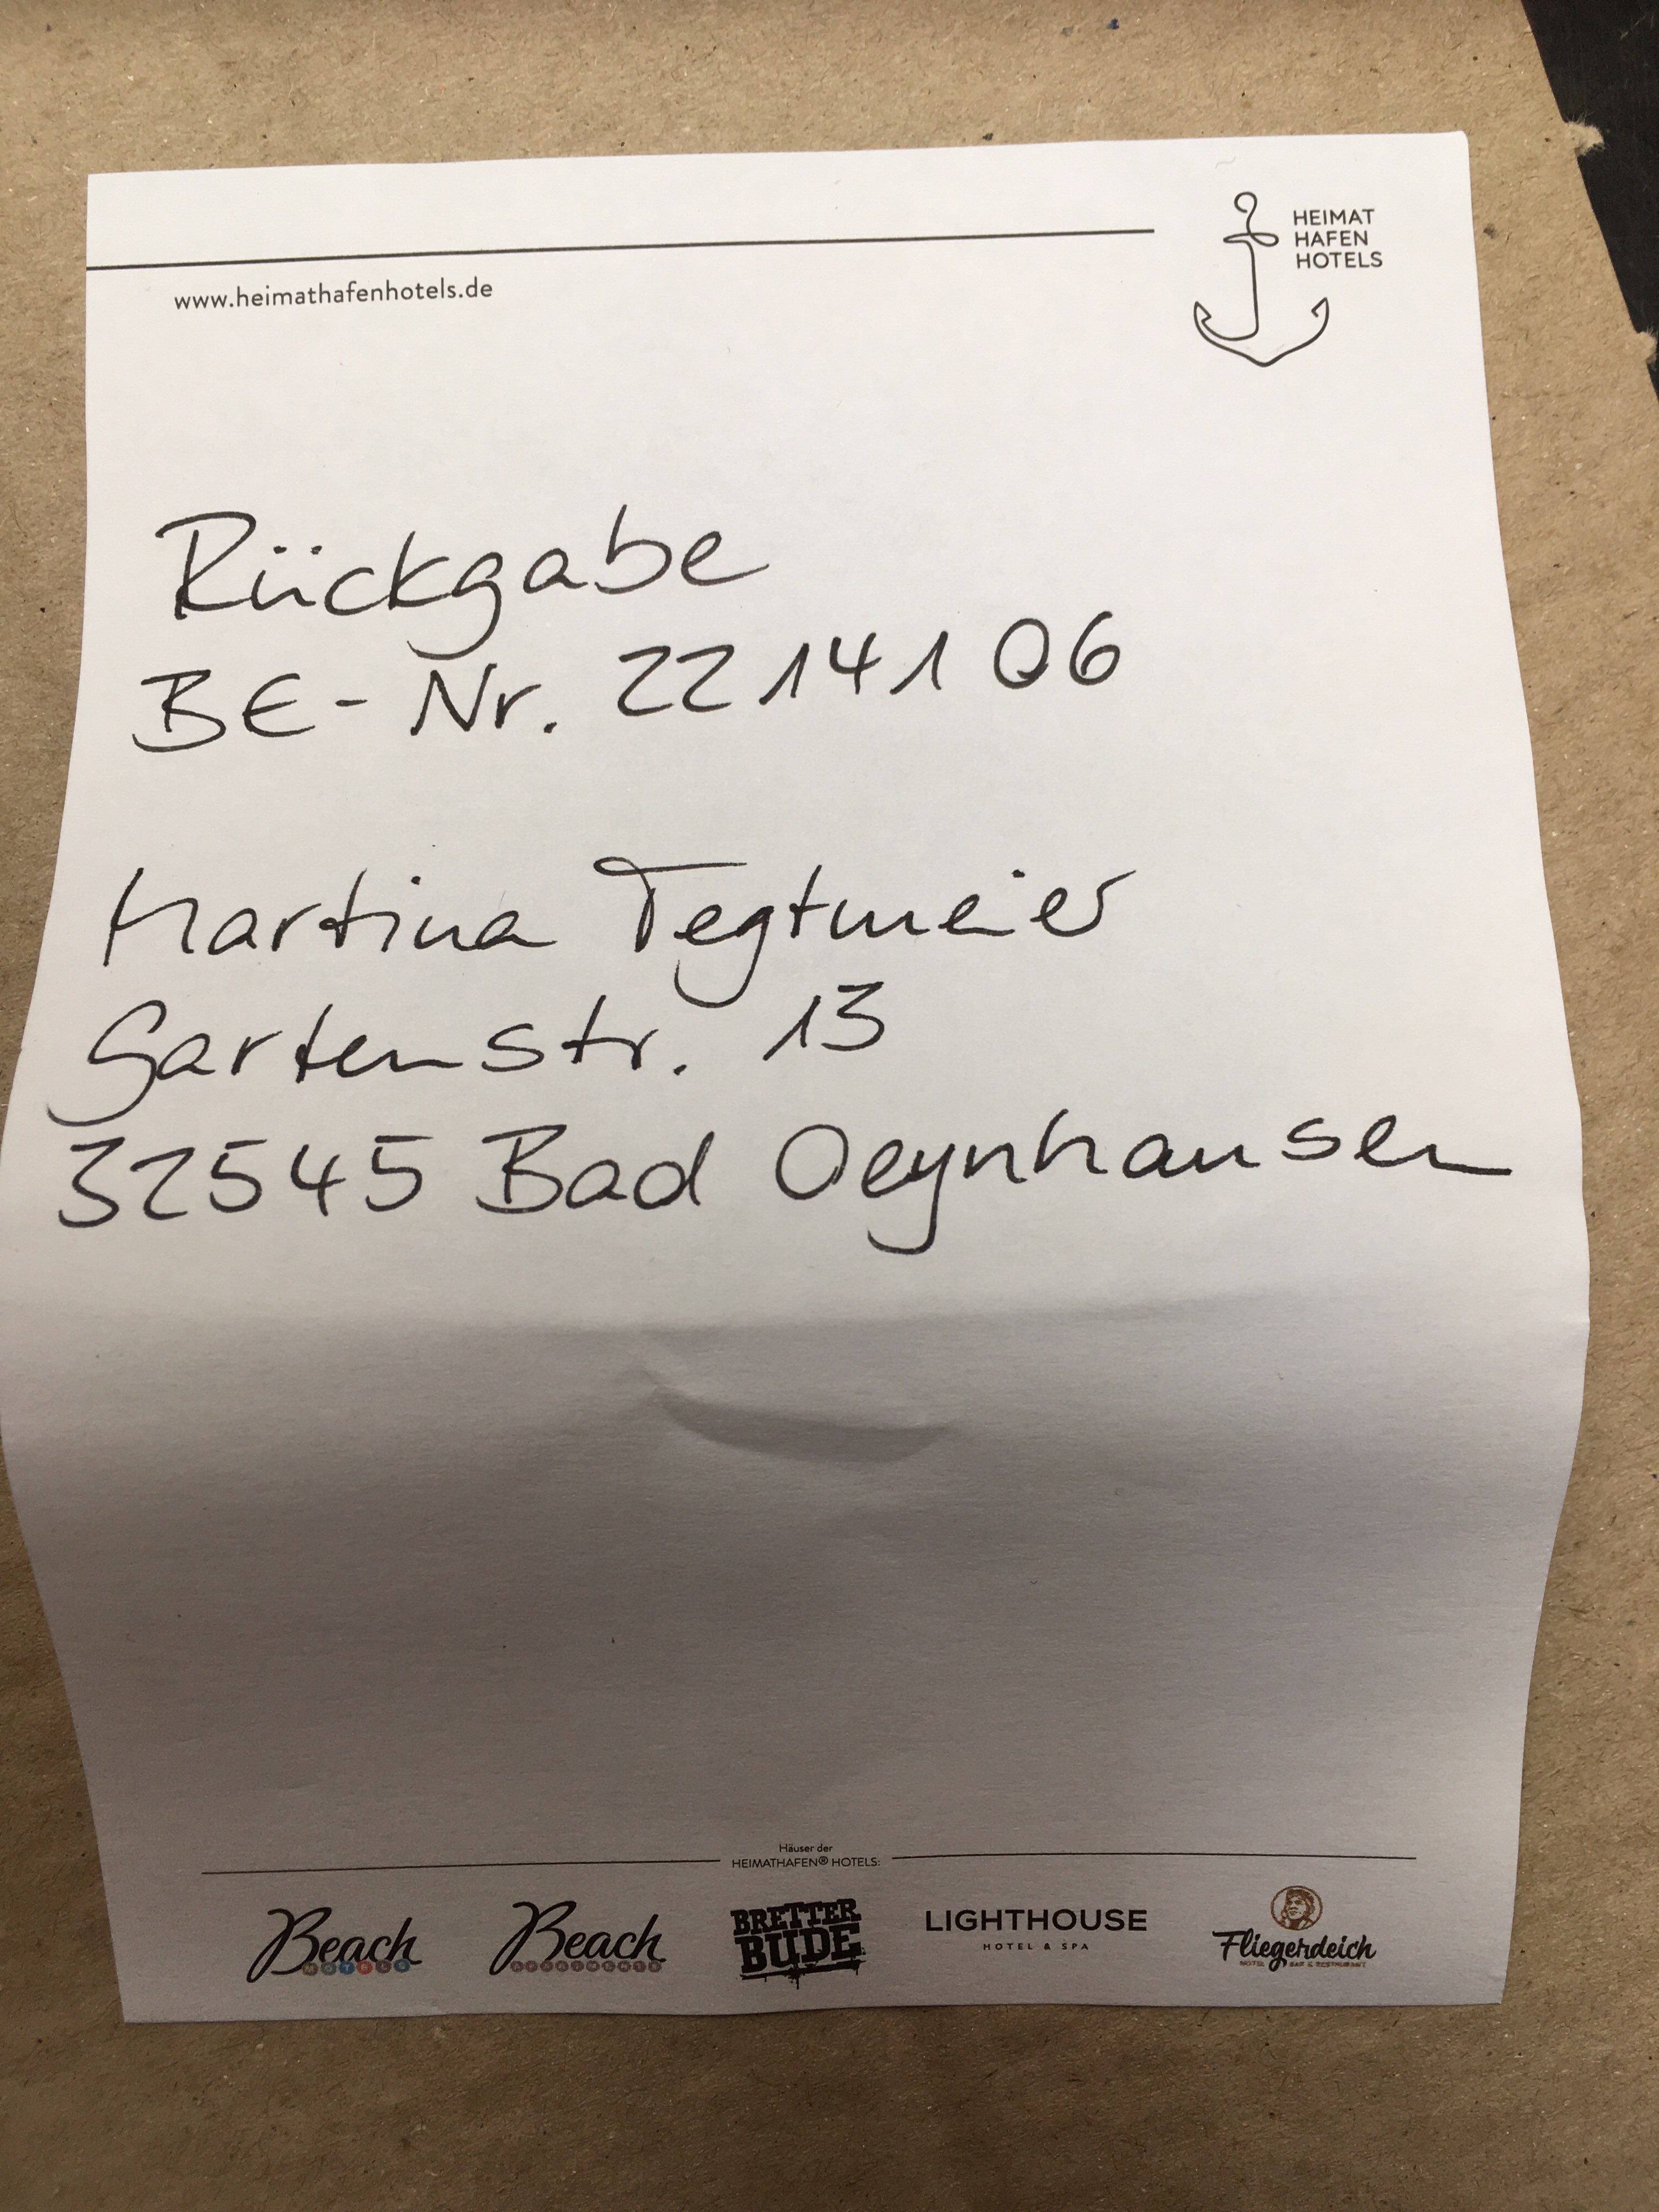 HEIMAT
HAFEN
HOTELS
www.heimathafenhotels.de
Rückgabe
BE-Nr. 2214106
Martina Tegtmeier
Gartenstr. 13
32545 Bad Oeynhausen
Häuser der
HEIMATHAFEN® HOTELS:
Beach
HOTELS
Beach
APARTMENTS
BRETTER
BUDE
LIGHTHOUSE
HOTEL & SPA
Fliegerdeich
HOTEL BAR & RESTAURANT